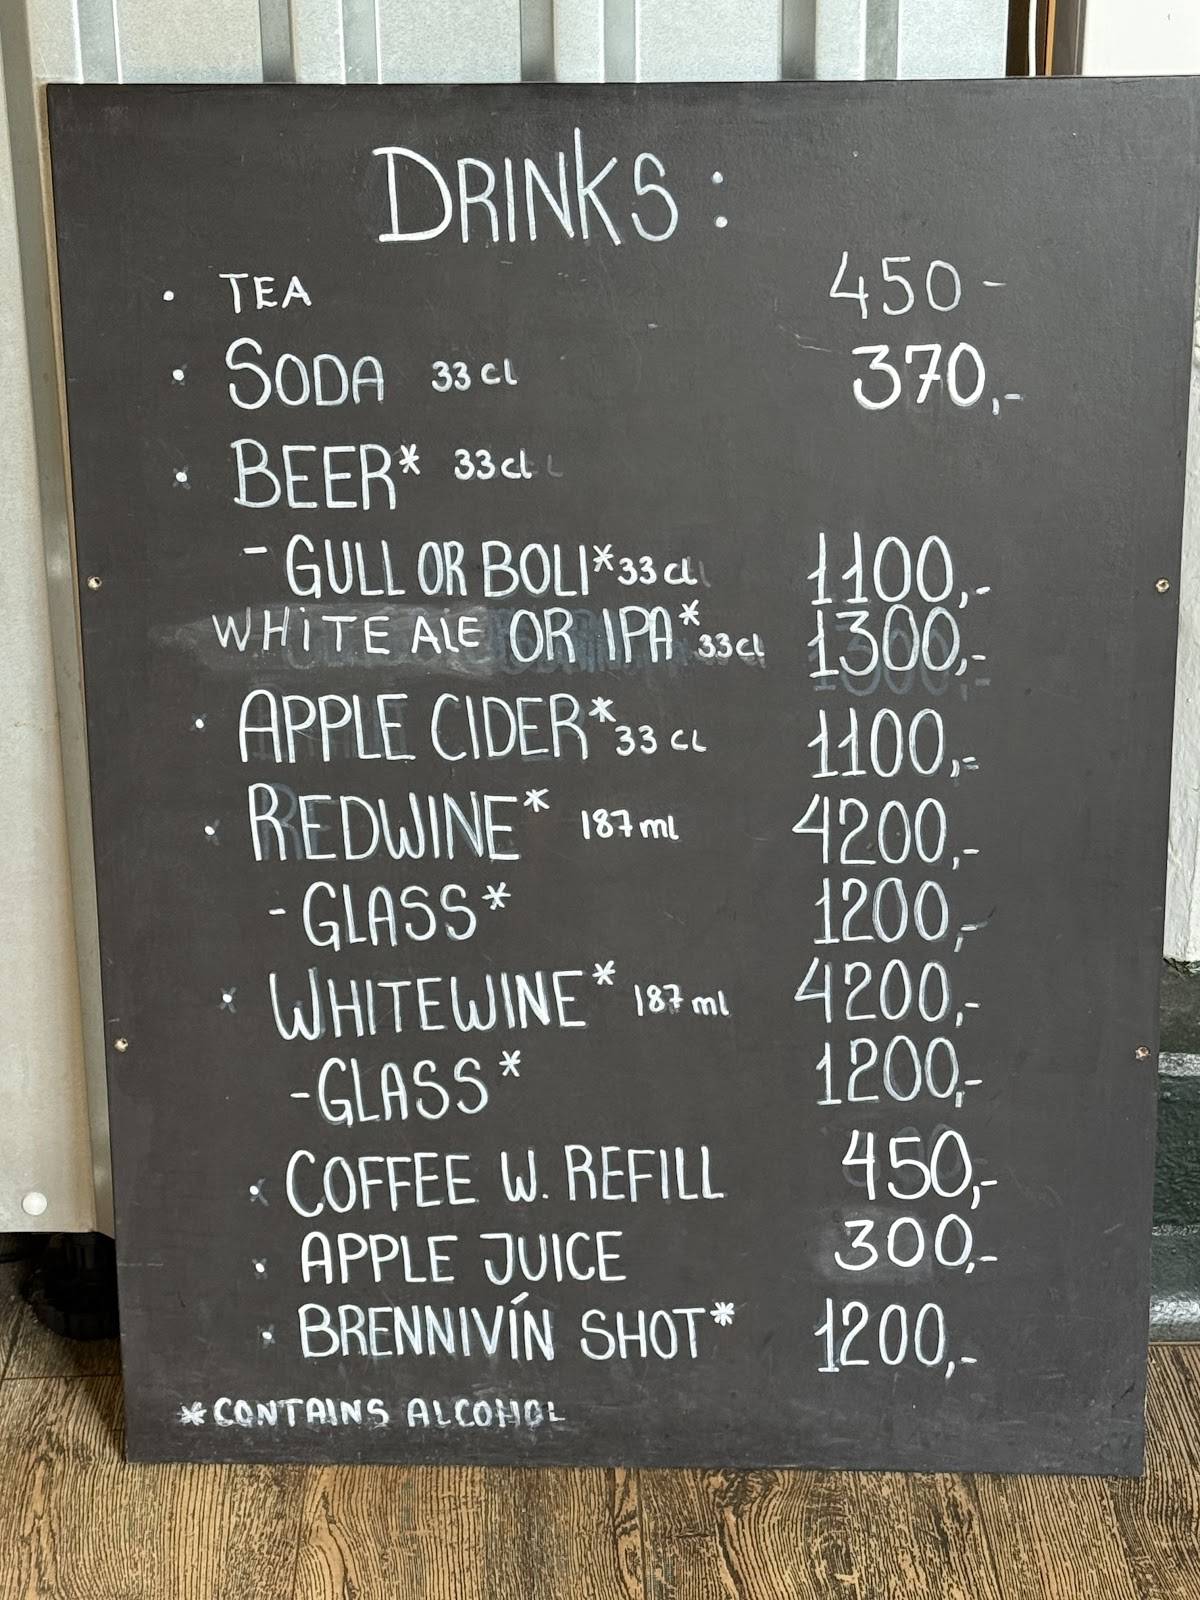 DRINKS:
• TEA 450-
• SODA 33cl 370,-
• BEER* 33cl
- GULL OR BOLI* 33cl 1100,-
WHiTE ALE OR IPA* 33cl 1300,-
• APPLE CIDER* 33 CL 1100,-
• REDWINE* 187ml 4200,-
- GLASS* 1200,-
• WHITEWINE* 187ml 4200,-
- GLASS* 1200,-
• COFFEE W. REFILL 450,-
• APPLE JUICE 300,-
• BRENNIVÍN SHOT* 1200,-
*CONTAINS ALCOHOL